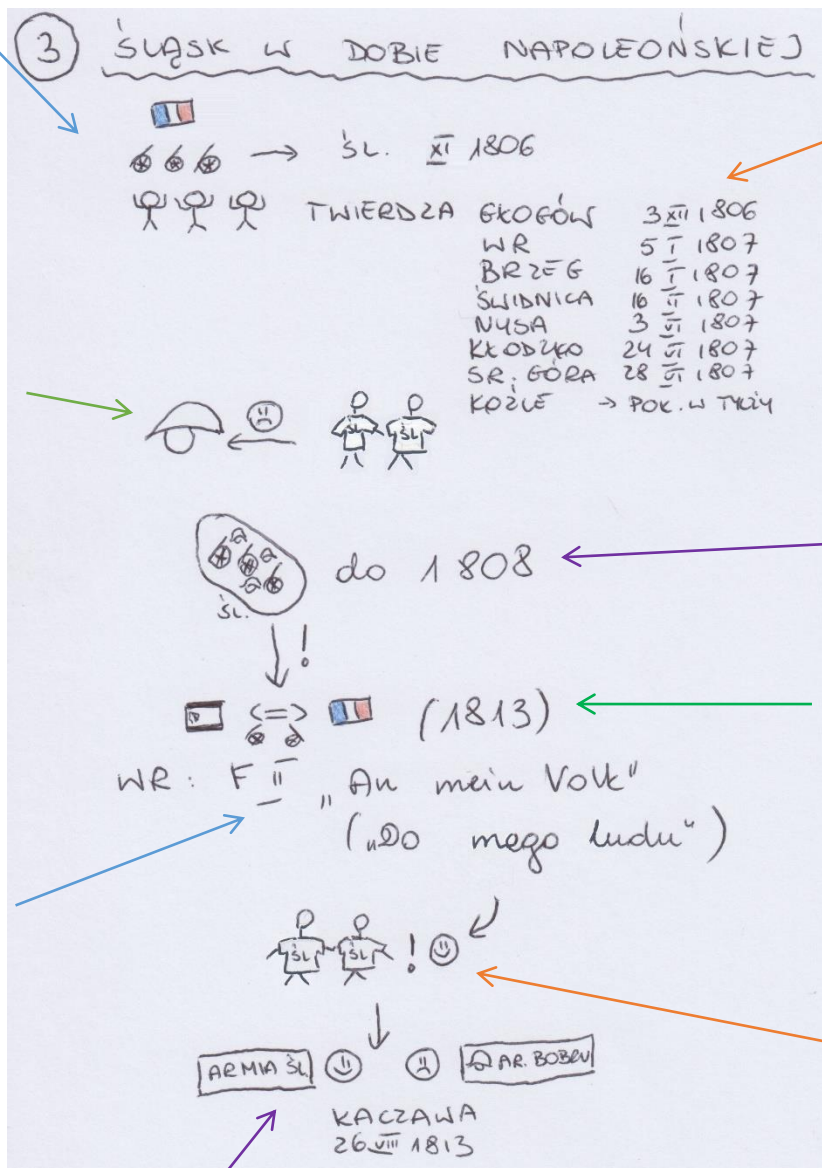 3 ŚLĄSK W DOBIE NAPOLEOŃSKIEJ
→ ŚL. XI 1806
TWIERDZA GŁOGÓW 3 XII 1806
WR 5 I 1807
BRZEG 16 I 1807
ŚWIDNICA 16 II 1807
NYSA 3 VI 1807
KŁODZKO 24 VI 1807
SR. GÓRA 28 VI 1807
KOŹLE → POK. W TYLŻY
ŚL ŚL
do 1808
ŚL.
!
<=> (1813)
WR: F II „An mein Volk"
(„Do mego ludu")
ŚL ŚL !
ARMIA ŚL. AR. BOBRU
KACZAWA
26 VIII 1813